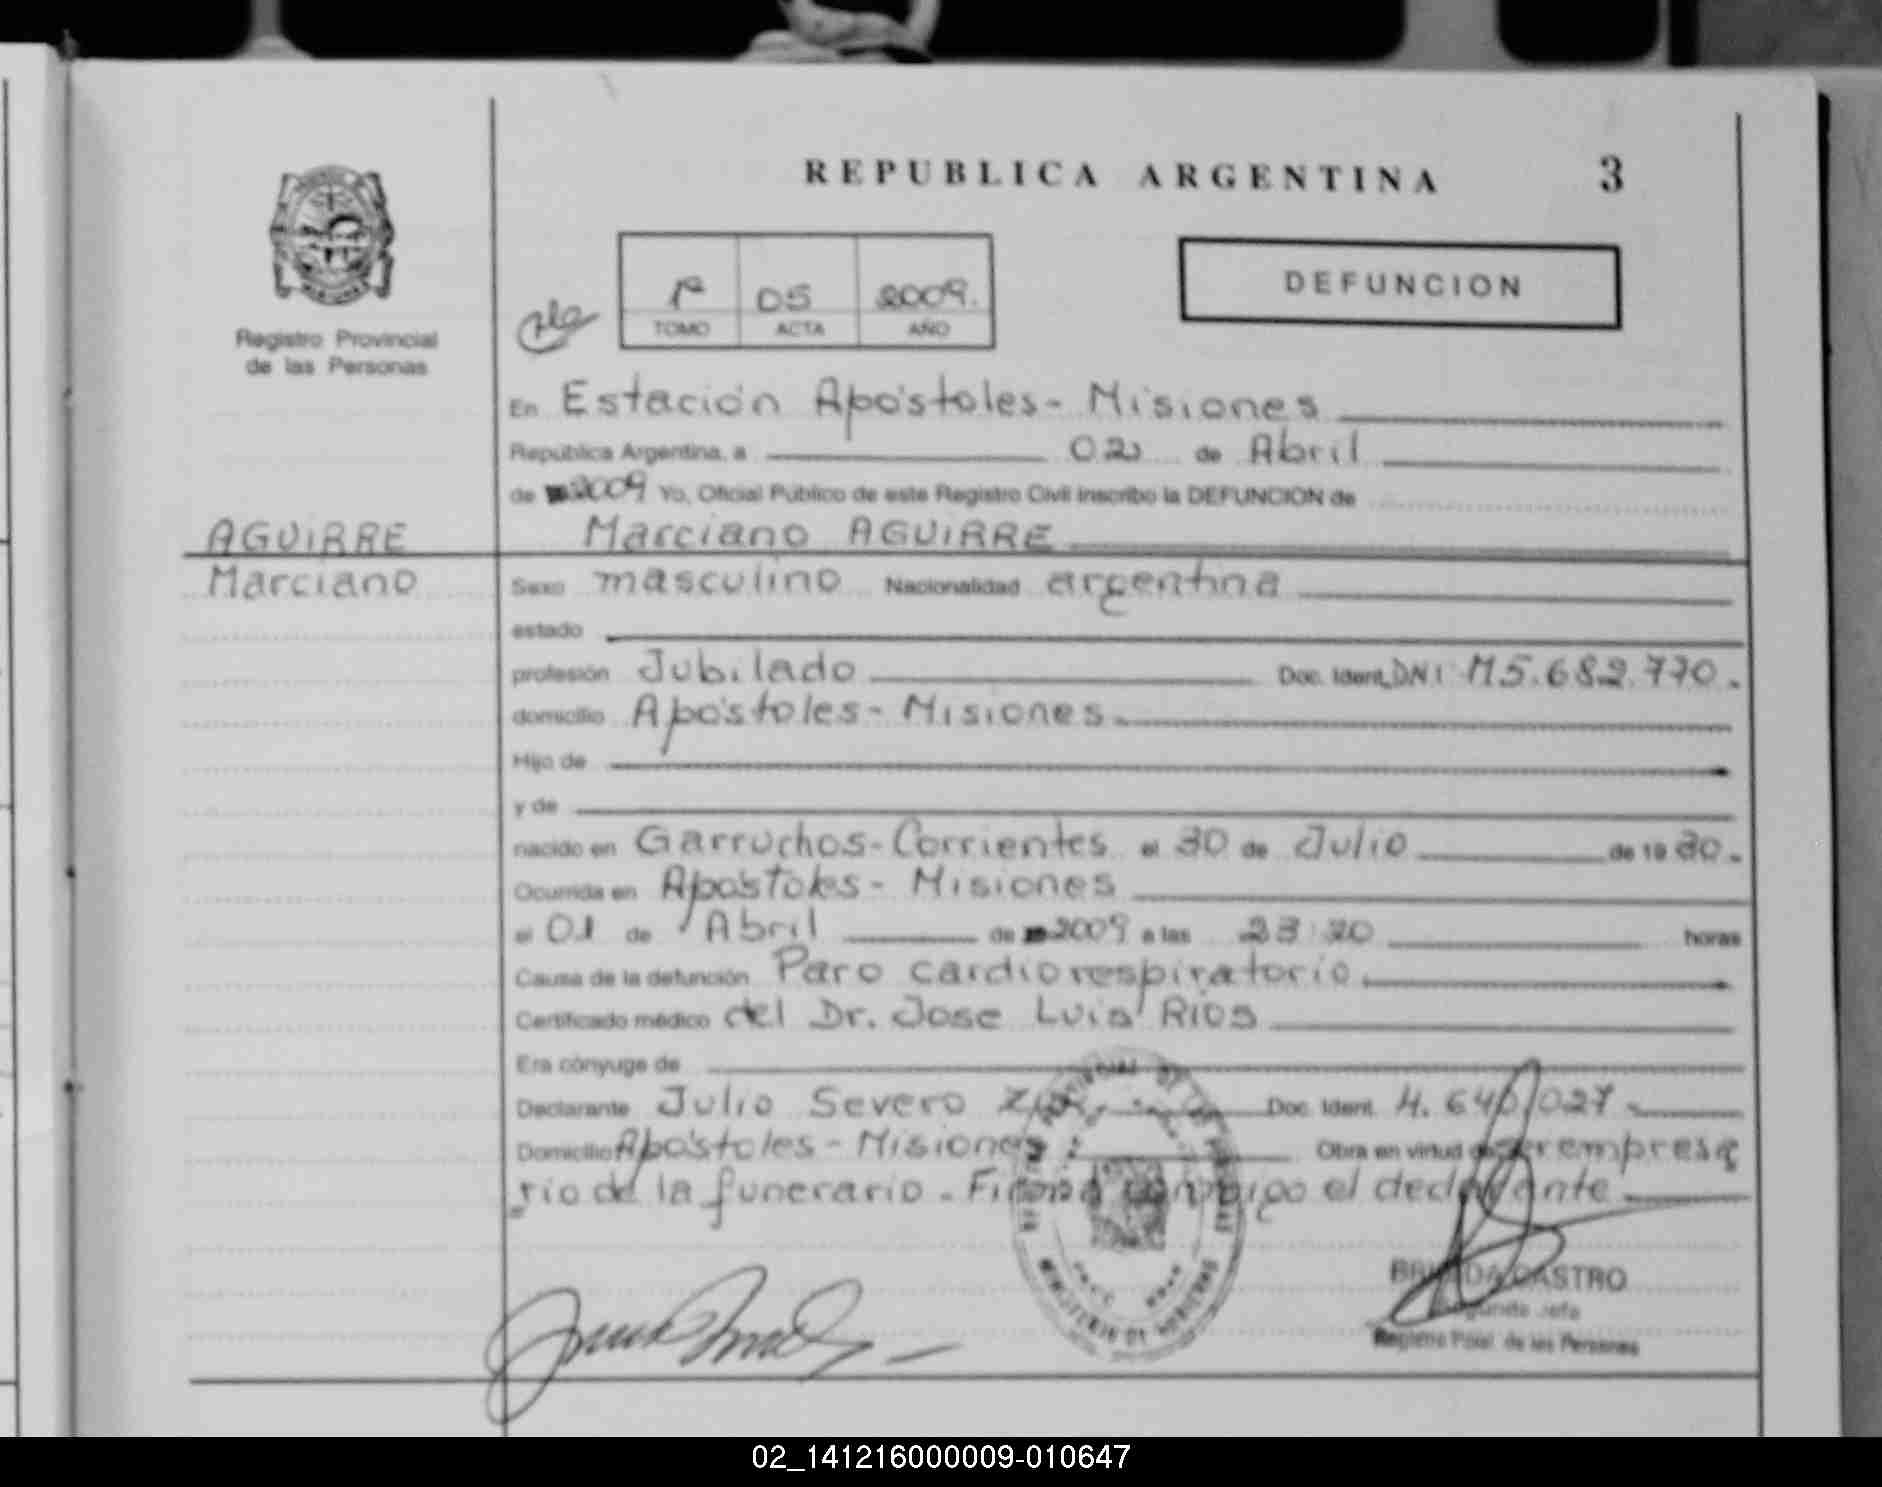 REPUBLICA ARGENTINA 3
Registro Provincial
de las Personas
1º 05 2009.
TOMO ACTA AÑO
DEFUNCION
En Estación Apóstoles - Misiones
República Argentina, a 02 de Abril
de 2009 Yo, Oficial Público de este Registro Civil inscribo la DEFUNCION de
AGUIRRE Marciano AGUIRRE
Marciano Sexo masculino Nacionalidad argentina
estado
profesión Jubilado Doc. Ident. DNI M5.682.770.
domicilio Apóstoles - Misiones
Hijo de
y de
nacido en Garruchos - Corrientes el 30 de Julio de 19
Ocurrida en Apóstoles - Misiones
el 01 de Abril de 2009 a las 23:20 horas
Causa de la defunción Paro cardiorespiratorio
Certificado médico del Dr. Jose Luis Rios
Era cónyuge de
Declarante Julio Severo Doc. Ident.
Domicilio Apóstoles - Misiones Obra en virtud de ser empresa
rio de la funerario - Firma conmigo el declarante
CASTRO
Segunda Jefa
Registro Pcial. de las Personas
02_141216000009-010647